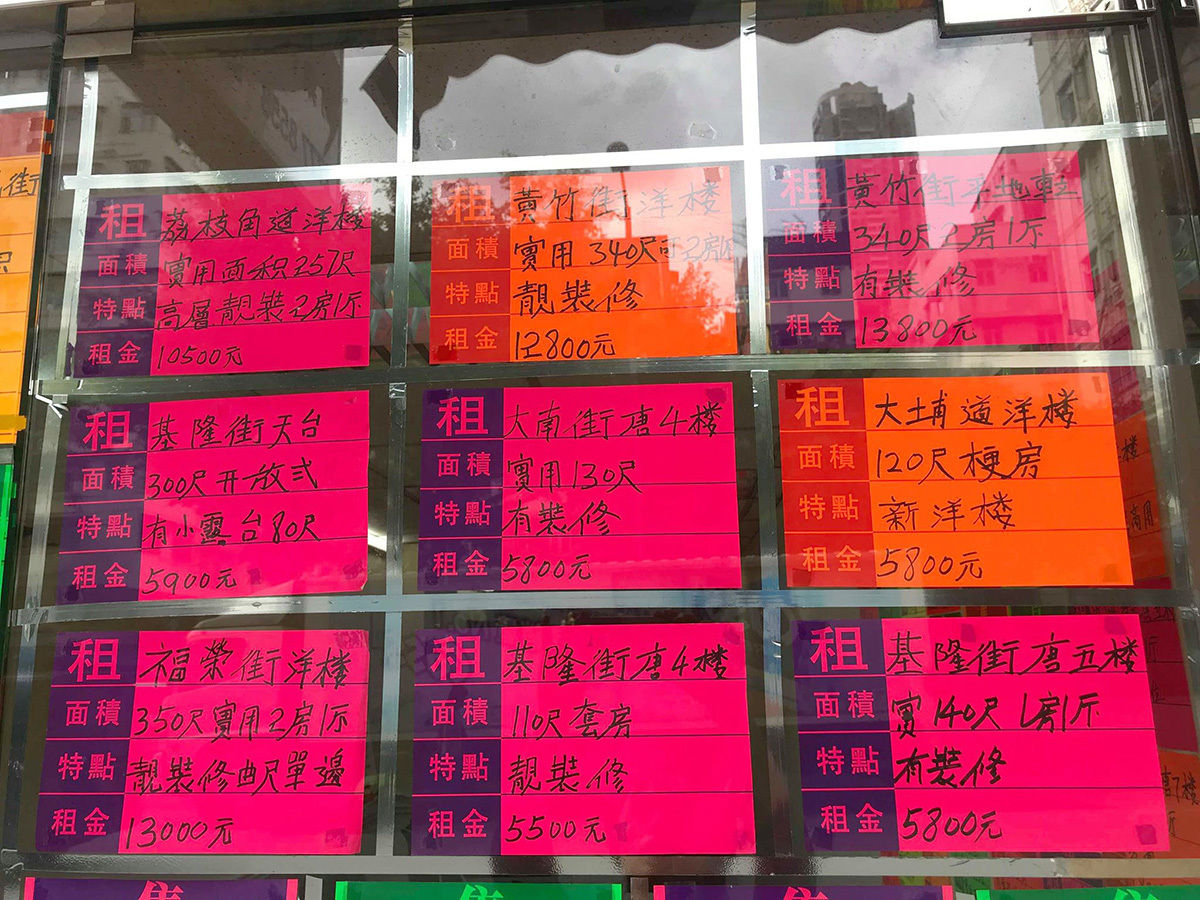 租 荔枝角道洋楼
面積 實用面积257尺
特點 高層靚裝2房1厅
租金 10500元
租 黄竹街洋楼
面積 實用340尺可2房厅
特點 靚裝修
租金 12800元
租 黄竹街平地
面積 340尺2房1厅
特點 有裝修
租金 13800元
租 基隆街天台
面積 300尺开放式
特點 有小露台80尺
租金 5900元
租 大南街唐4楼
面積 實用130尺
特點 有裝修
租金 5800元
租 大埔道洋楼
面積 120尺梗房
特點 新洋楼
租金 5800元
租 福榮街洋楼
面積 350尺實用2房1厅
特點 靚裝修曲尺單邊
租金 13000元
租 基隆街唐4楼
面積 110尺套房
特點 靚裝修
租金 5500元
租 基隆街唐五楼
面積 實140尺1房1厅
特點 有裝修
租金 5800元